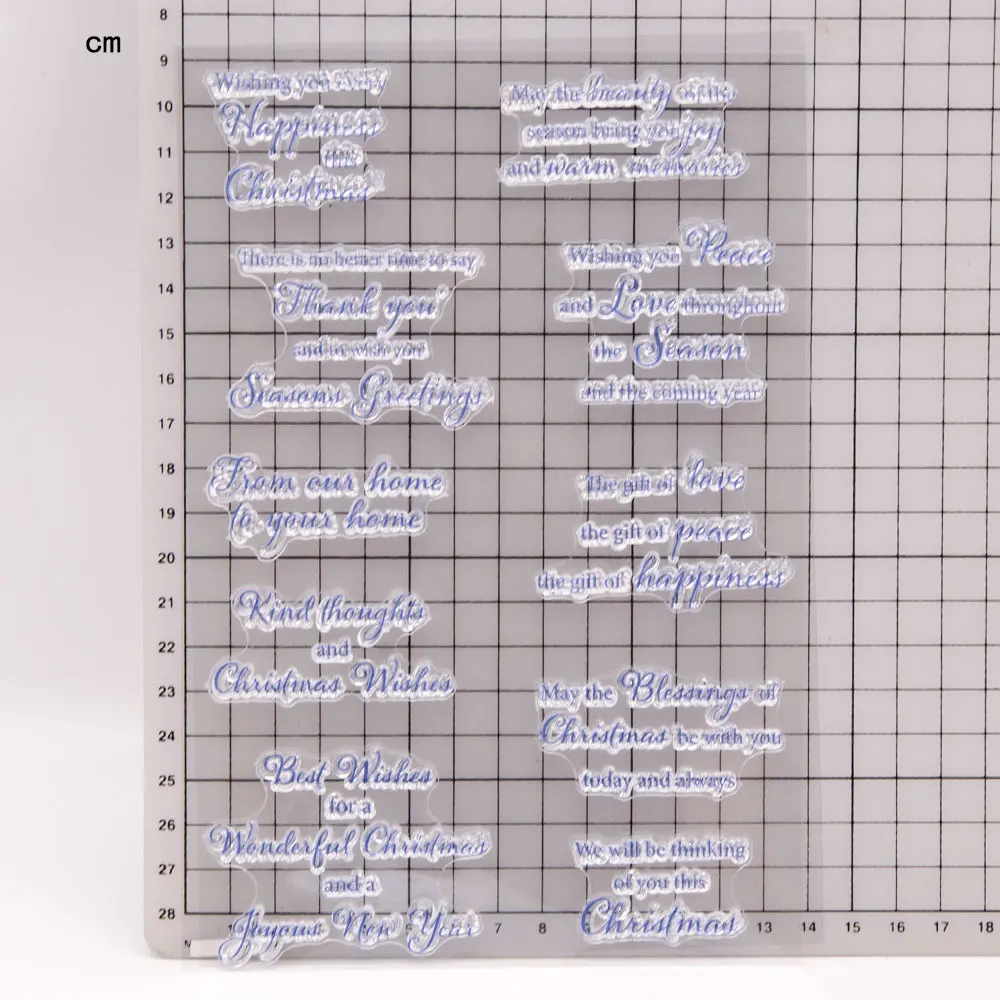 cm
8
9
10
11
12
13
14
15
16
17
18
19
20
21
22
23
24
25
26
27
28
Wishing you every
Happiness
this
Christmas
There is no better time to say
Thank you
and to wish you
Seasons Greetings
From our home
to your home
Kind thoughts
and
Christmas Wishes
Best Wishes
for a
Wonderful Christmas
and a
Joyous New Year
May the beauty of the
season bring you joy
and warm memories
Wishing you Peace
and Love throughout
the Season
and the coming year
The gift of love
the gift of peace
the gift of happiness
May the Blessings of
Christmas be with you
today and always
We will be thinking
of you this
Christmas
7 8 13 14 15 16 17 18